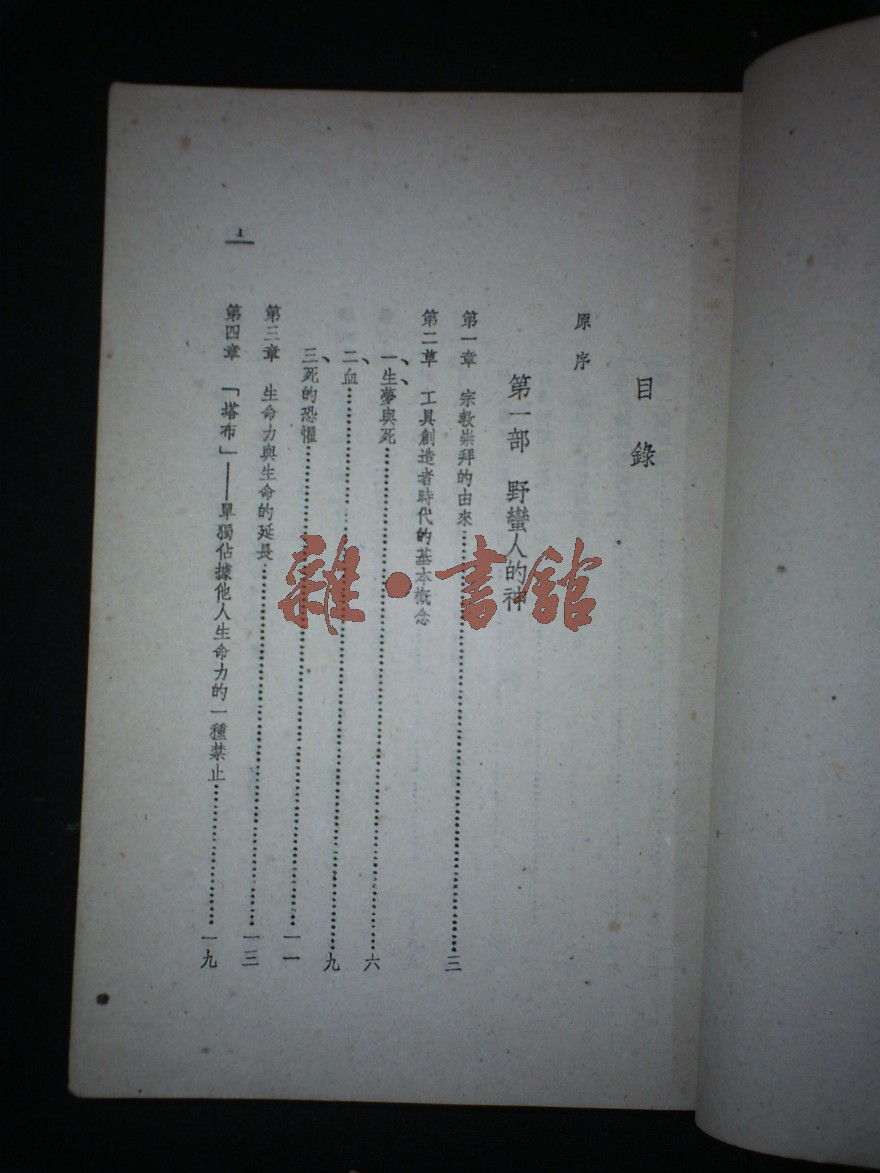 目錄
原序
第一部　野蠻人的神
第一章　宗教崇拜的由來…………三
第二章　工具創造者時代的基本概念
一、生、夢與死…………六
二、血…………九
三、死的恐懼…………一一
第三章　生命力與生命的延長…………一三
第四章　「塔布」——單獨佔據他人生命力的一種禁止…………一九
1
雜·書館